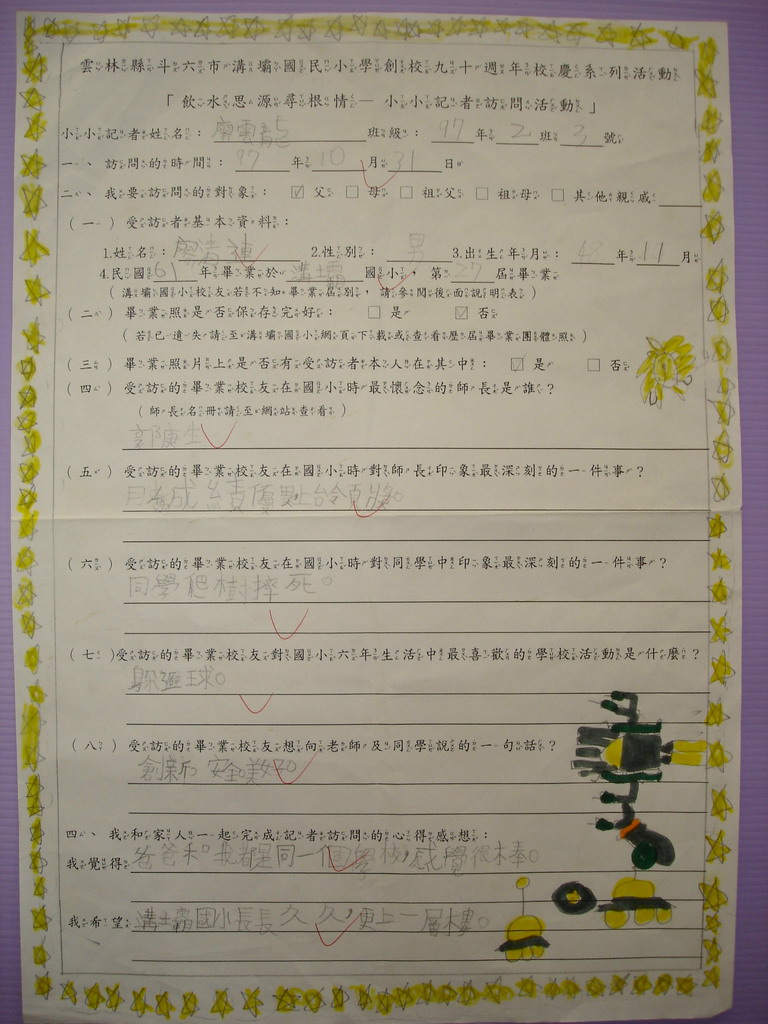 雲林縣斗六市溝壩國民小學創校九十週年校慶系列活動
「飲水思源尋根情— 小小記者訪問活動」
小小記者姓名：廖雲龍 班級：97年2班3號
一、訪問的時間：97年10月31日
二、我要訪問的對象：☑父 □母 □祖父 □祖母 □其他親戚
（一）受訪者基本資料：
1.姓名：廖清 2.性別：男 3.出生年月：年11月
4.民國61年畢業於溝壩國小，第27屆畢業
（溝壩國小校友若不知畢業屆別，請參閱後面說明表）
（二）畢業照是否保存完好：□是 ☑否
（若已遺失請至溝壩國小網頁下載或查看歷屆畢業團體照）
（三）畢業照片上是否有受訪者本人在其中：☑是 □否
（四）受訪的畢業校友在國小時最懷念的師長是誰？
（師長名冊請至網站查看）
郭庚生
（五）受訪的畢業校友在國小時對師長印象最深刻的一件事？
月考成績優異上台領獎。
（六）受訪的畢業校友在國小時對同學中印象最深刻的一件事？
同學爬樹摔死。
（七）受訪的畢業校友對國小六年生活中最喜歡的學校活動是什麼？
躲避球。
（八）受訪的畢業校友想向老師及同學說的一句話？
創新。安全。美好。
四、我和家人一起完成記者訪問的心得感想：
我覺得：爸爸和我都是同一個學校，感覺很棒。
我希望：溝壩國小長長久久，更上一層樓。